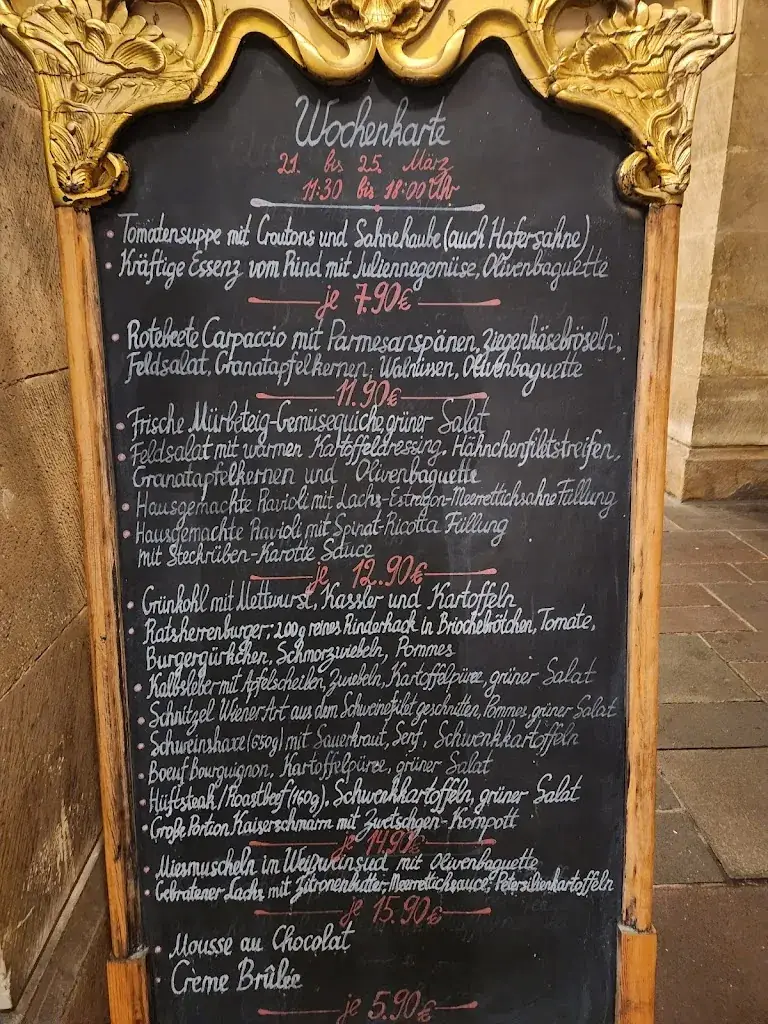 Wochenkarte
21. bis 25. März
11:30 bis 18:00 Uhr
• Tomatensuppe mit Croutons und Sahnehaube (auch Hafersahne)
• Kräftige Essenz vom Rind mit Juliennegemüse, Olivenbaguette
je 7.90€
• Rotebeete Carpaccio mit Parmesanspänen, Ziegenkäsebröseln,
Feldsalat, Granatapfelkernen, Walnüssen, Olivenbaguette
11.90€
• Frische Mürbeteig-Gemüsequiche, grüner Salat
• Feldsalat mit warmen Kartoffeldressing, Hähnchenfiletstreifen,
Granatapfelkernen und Olivenbaguette
• Hausgemachte Ravioli mit Lachs-Estragon-Meerrettichsahne Füllung
• Hausgemachte Ravioli mit Spinat-Ricotta Füllung
mit Steckrüben-Karotte Sauce
je 12.90€
• Grünkohl mit Mettwurst, Kassler und Kartoffeln
• Ratsherrenburger: 200g reines Rinderhack in Briochebrötchen, Tomate,
Burgergürkchen, Schmorzwiebeln, Pommes
• Kalbsleber mit Apfelscheiben, Zwiebeln, Kartoffelpüree, grüner Salat
• Schnitzel Wiener Art aus dem Schweinefilet geschnitten, Pommes, grüner Salat
• Schweinshaxe (650g) mit Sauerkraut, Senf, Schwenkkartoffeln
• Boeuf Bourguignon, Kartoffelpüree, grüner Salat
• Hüftsteak/Roastbeef (160g), Schwenkkartoffeln, grüner Salat
• Große Portion Kaiserschmarrn mit Zwetschgen-Kompott
je 14.90€
• Miesmuscheln im Weißweinsud mit Olivenbaguette
• Gebratener Lachs mit Zitronenbutter-Meerrettichsauce, Petersilienkartoffeln
je 15.90€
• Mousse au Chocolat
• Crème Brûlée
je 5.90€